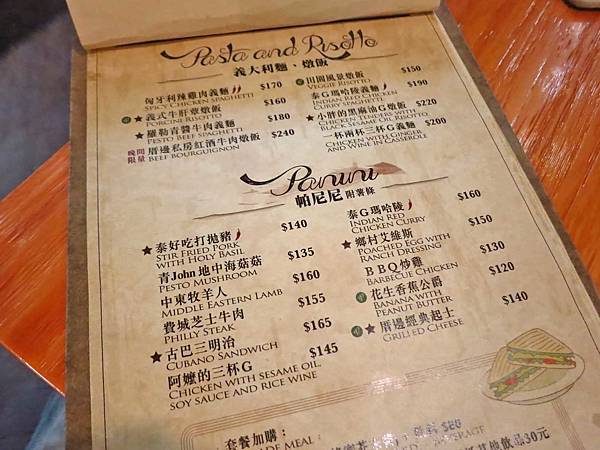 Pasta and Risotto
義大利麵、燉飯
匈牙利辣雞肉義麵 $170
SPICY CHICKEN SPAGHETTI
義式牛肝蕈燉飯 $160
PORCINI RISOTTO
羅勒青醬牛肉義麵 $180
PESTO BEEF SPAGHETTI
晚間限量 厝邊私房紅酒牛肉燉飯 $240
BEEF BOURGUIGNON
田園風景燉飯 $150
VEGGIE RISOTTO
泰G瑪哈陵義麵 $190
INDIAN RED CHICKEN
CURRY SPAGHETTI
小胖的黑麻油G燉飯 $220
CHICKEN TENDERS WITH
BLACK SESAME OIL RISOTTO
一杯兩杯三杯G義麵 $200
CHICKEN WITH GINGER
AND WINE IN CASSEROLE
Panini
帕尼尼 附薯條
泰好吃打拋豬 $140
STIR FRIED PORK
WITH HOLY BASIL
青John地中海菇菇 $135
PESTO MUSHROOM
中東牧羊人 $160
MIDDLE EASTERN LAMB
費城芝士牛肉 $155
PHILLY STEAK
古巴三明治 $165
CUBANO SANDWICH
阿嬤的三杯G $145
CHICKEN WITH SESAME OIL,
SOY SAUCE AND RICE WINE
泰G瑪哈陵 $160
INDIAN RED
CHICKEN CURRY
鄉村艾維斯 $150
POACHED EGG WITH
RANCH DRESSING
BBQ炒雞 $130
BARBECUE CHICKEN
花生香蕉公爵 $120
BANANA WITH
PEANUT BUTTER
厝邊經典起士 $140
GRILLED CHEESE
套餐加購：
MEAL
$80
其他飲品30元